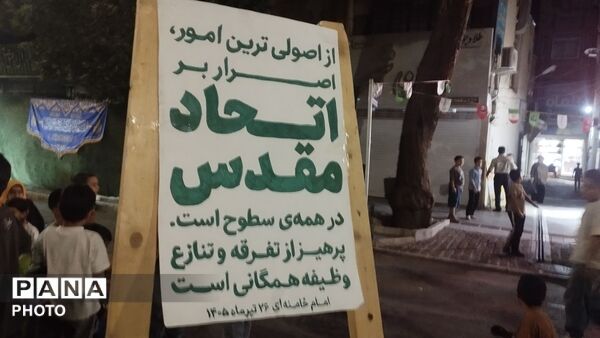 از اصولی ترین امور،
اصرار بر
اتحاد
مقدس
در همه‌ی سطوح است.
پرهیز از تفرقه و تنازع
وظیفه همگانی است
امام خامنه‌ای ۲۶ تیرماه ۱۴۰۵
PANA
PHOTO